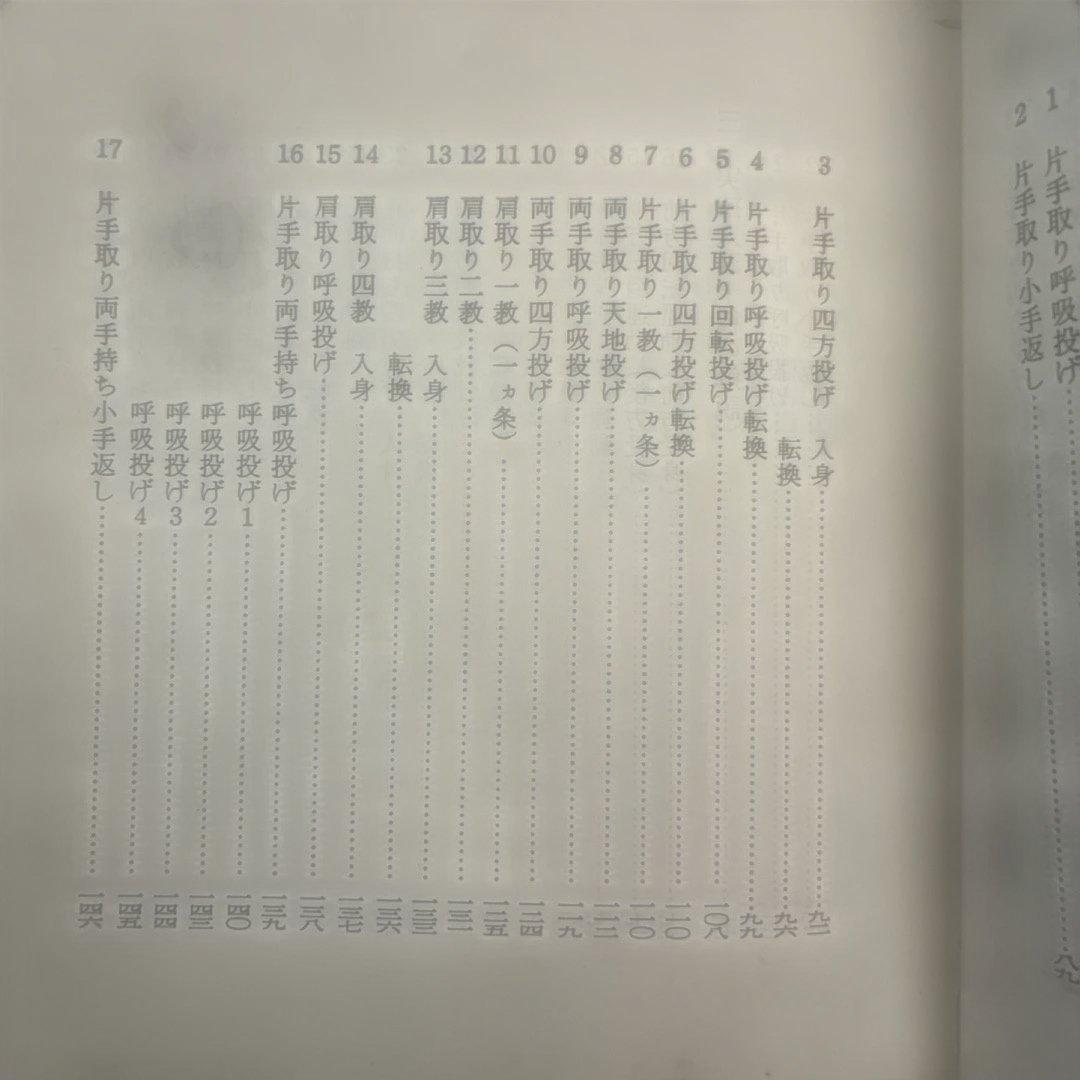 1 片手取り呼吸投げ……八九
2 片手取り小手返し……
3 片手取り四方投げ 入身……
転換……九六
4 片手取り呼吸投げ転換……九九
5 片手取り回転投げ……一〇八
6 片手取り四方投げ転換……一一〇
7 片手取り一教（一ヵ条）……
8 両手取り天地投げ……
9 両手取り呼吸投げ……一一九
10 両手取り四方投げ……一二四
11 肩取り一教（一ヵ条）……一二五
12 肩取り二教……
13 肩取り三教 入身……一三三
転換……一三六
14 肩取り四教 入身……一三七
15 肩取り呼吸投げ……一三八
16 片手取り両手持ち呼吸投げ……一三九
呼吸投げ1……一四〇
呼吸投げ2……一四三
呼吸投げ3……一四四
呼吸投げ4……一四五
17 片手取り両手持ち小手返し……一四六